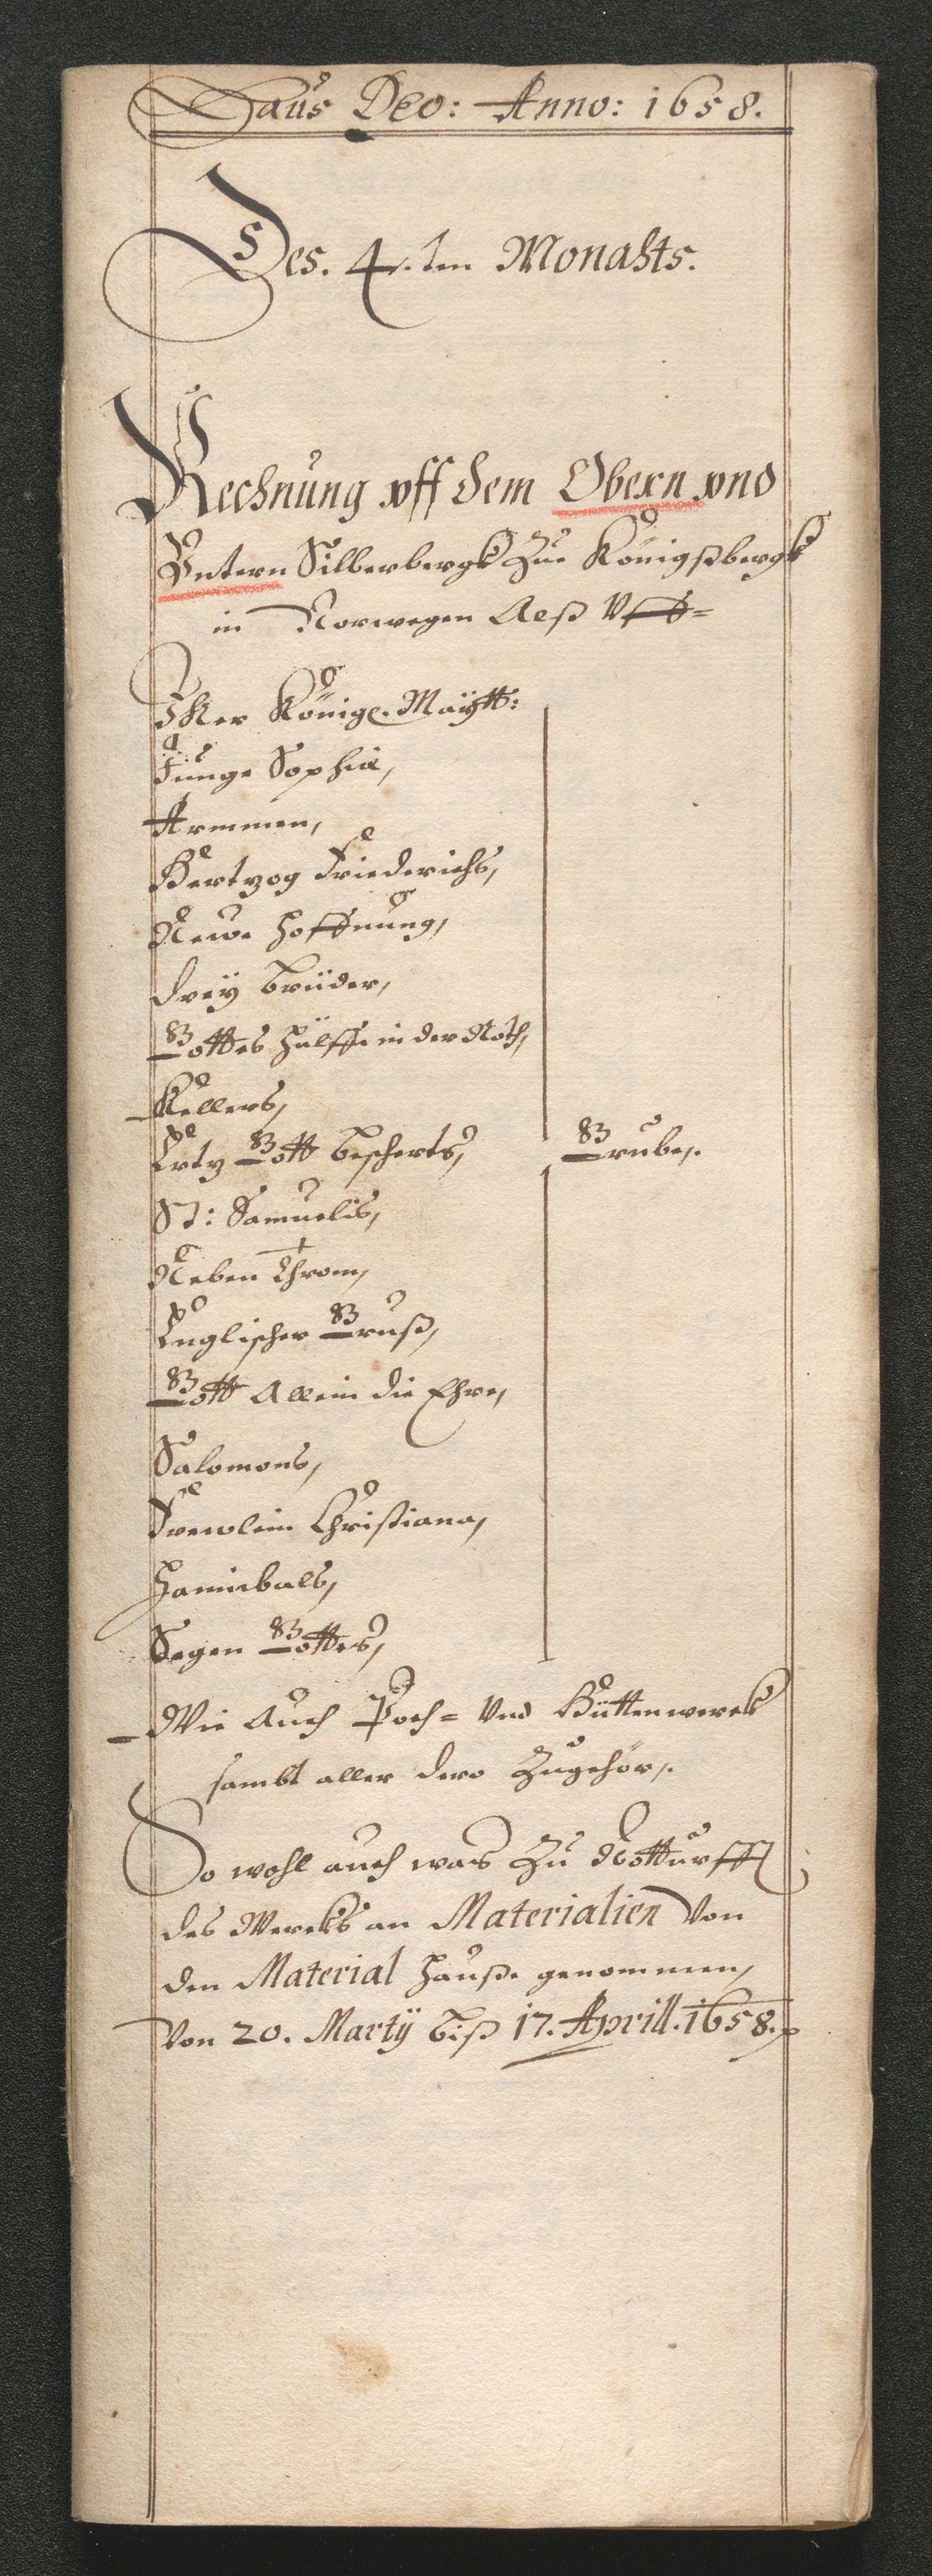 Laus Deo: Anno: 1658.
Des. 4.ten Monahts.
Rechnung vff dem Obern vnd
Vntern Silberbergk Zue Königßbergk
in Norwegen Alß Vff=
Iher Königl. Maÿtt:
Junge Sophia,
Armmen,
Hertzog Friederichs,
Newe Hoffnung,
Dreÿ Brüder,
Gottes Hülffe in der Noth,
Kellers,
Ertz Gott bescherts, Grube,.
St: Samuelis,
Neben Throm,
Englischer Gruß,
Gott Allein die Ehre,
Salomons,
Frewlein Christiana,
Hannibals,
Segen Gottes,
Wie Auch Poch= Vnd Hüttenwerck
sambt aller dero Zugehör,.
So wohl auch was Zu Notturfft
des Wercks an Materialien Von
den Material Hauße genommen,
Von 20. Martÿ biß 17. Aprill. 1658.